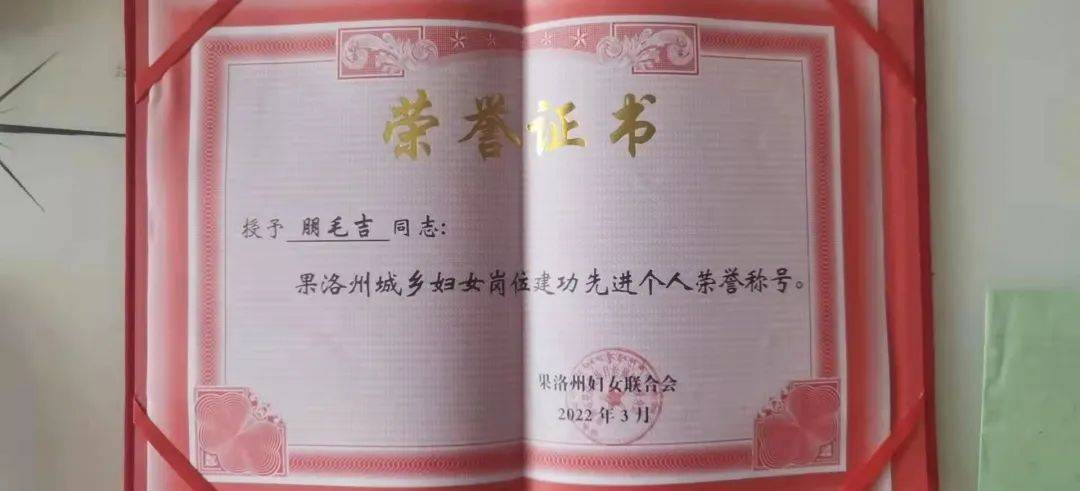 荣誉证书
授予 朋毛吉 同志:
果洛州城乡妇女岗位建功先进个人荣誉称号。
果洛州妇女联合会
2022年3月